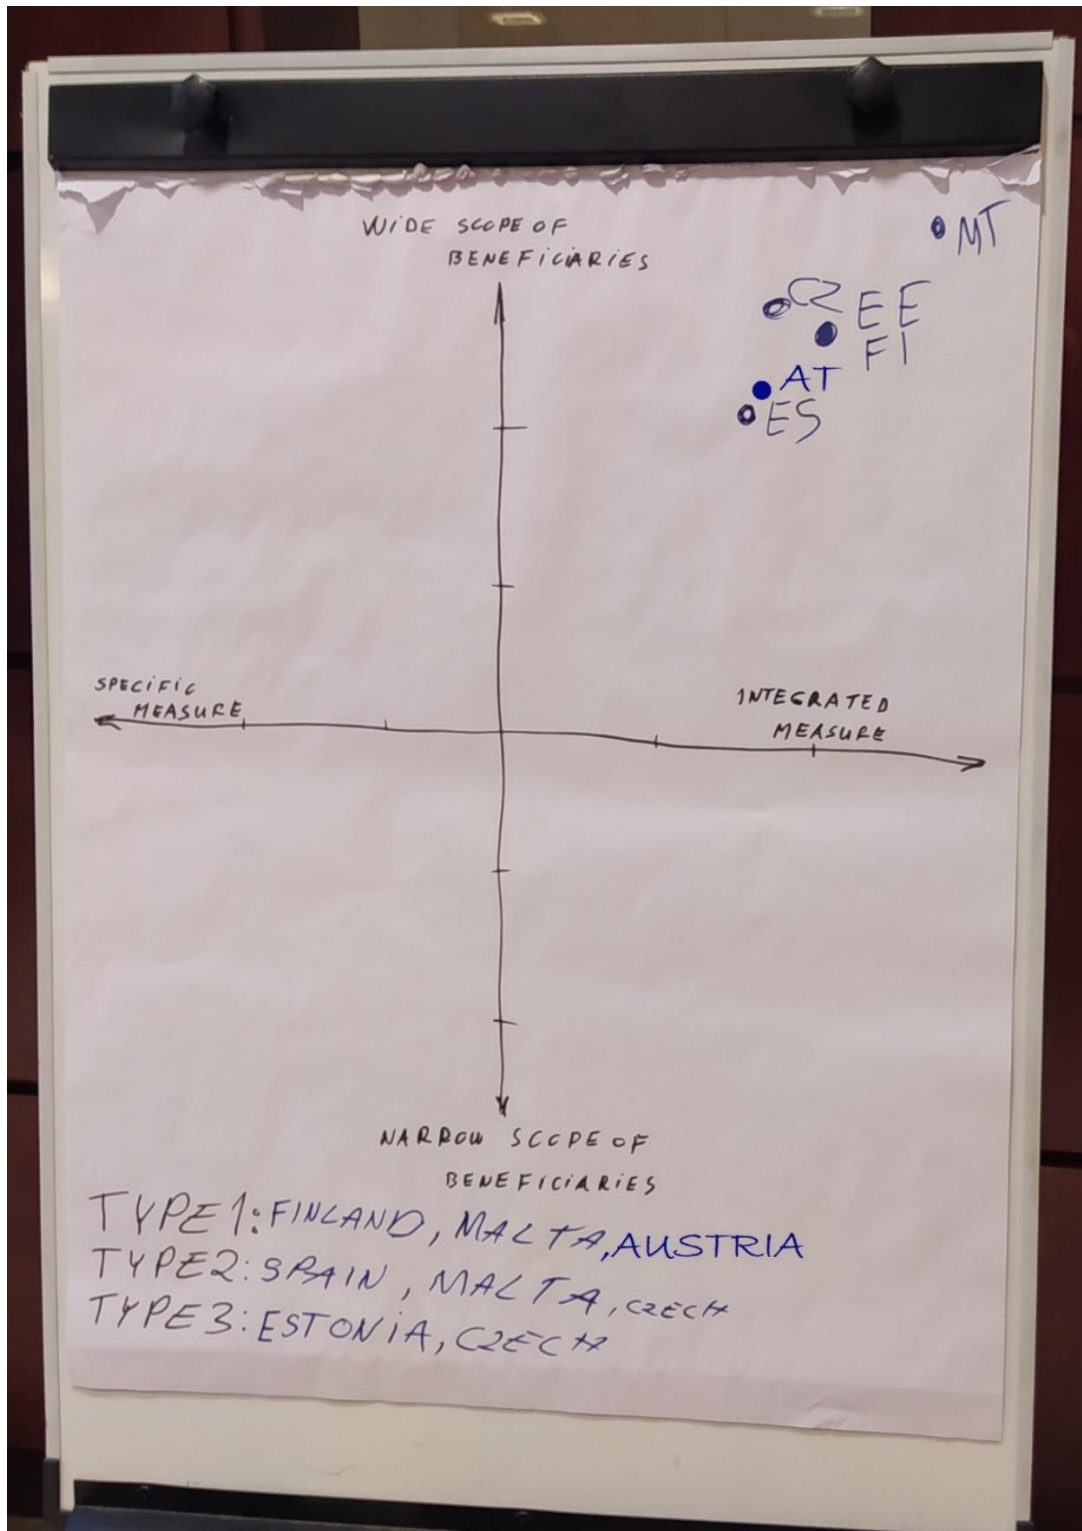 WIDE SCOPE OF
BENEFICIARIES
MT
CZ
EE
FI
AT
ES
SPECIFIC
MEASURE
INTEGRATED
MEASURE
NARROW SCOPE OF
BENEFICIARIES
TYPE1: FINLAND, MALTA, AUSTRIA
TYPE2: SPAIN, MALTA, CZECH
TYPE3: ESTONIA, CZECH